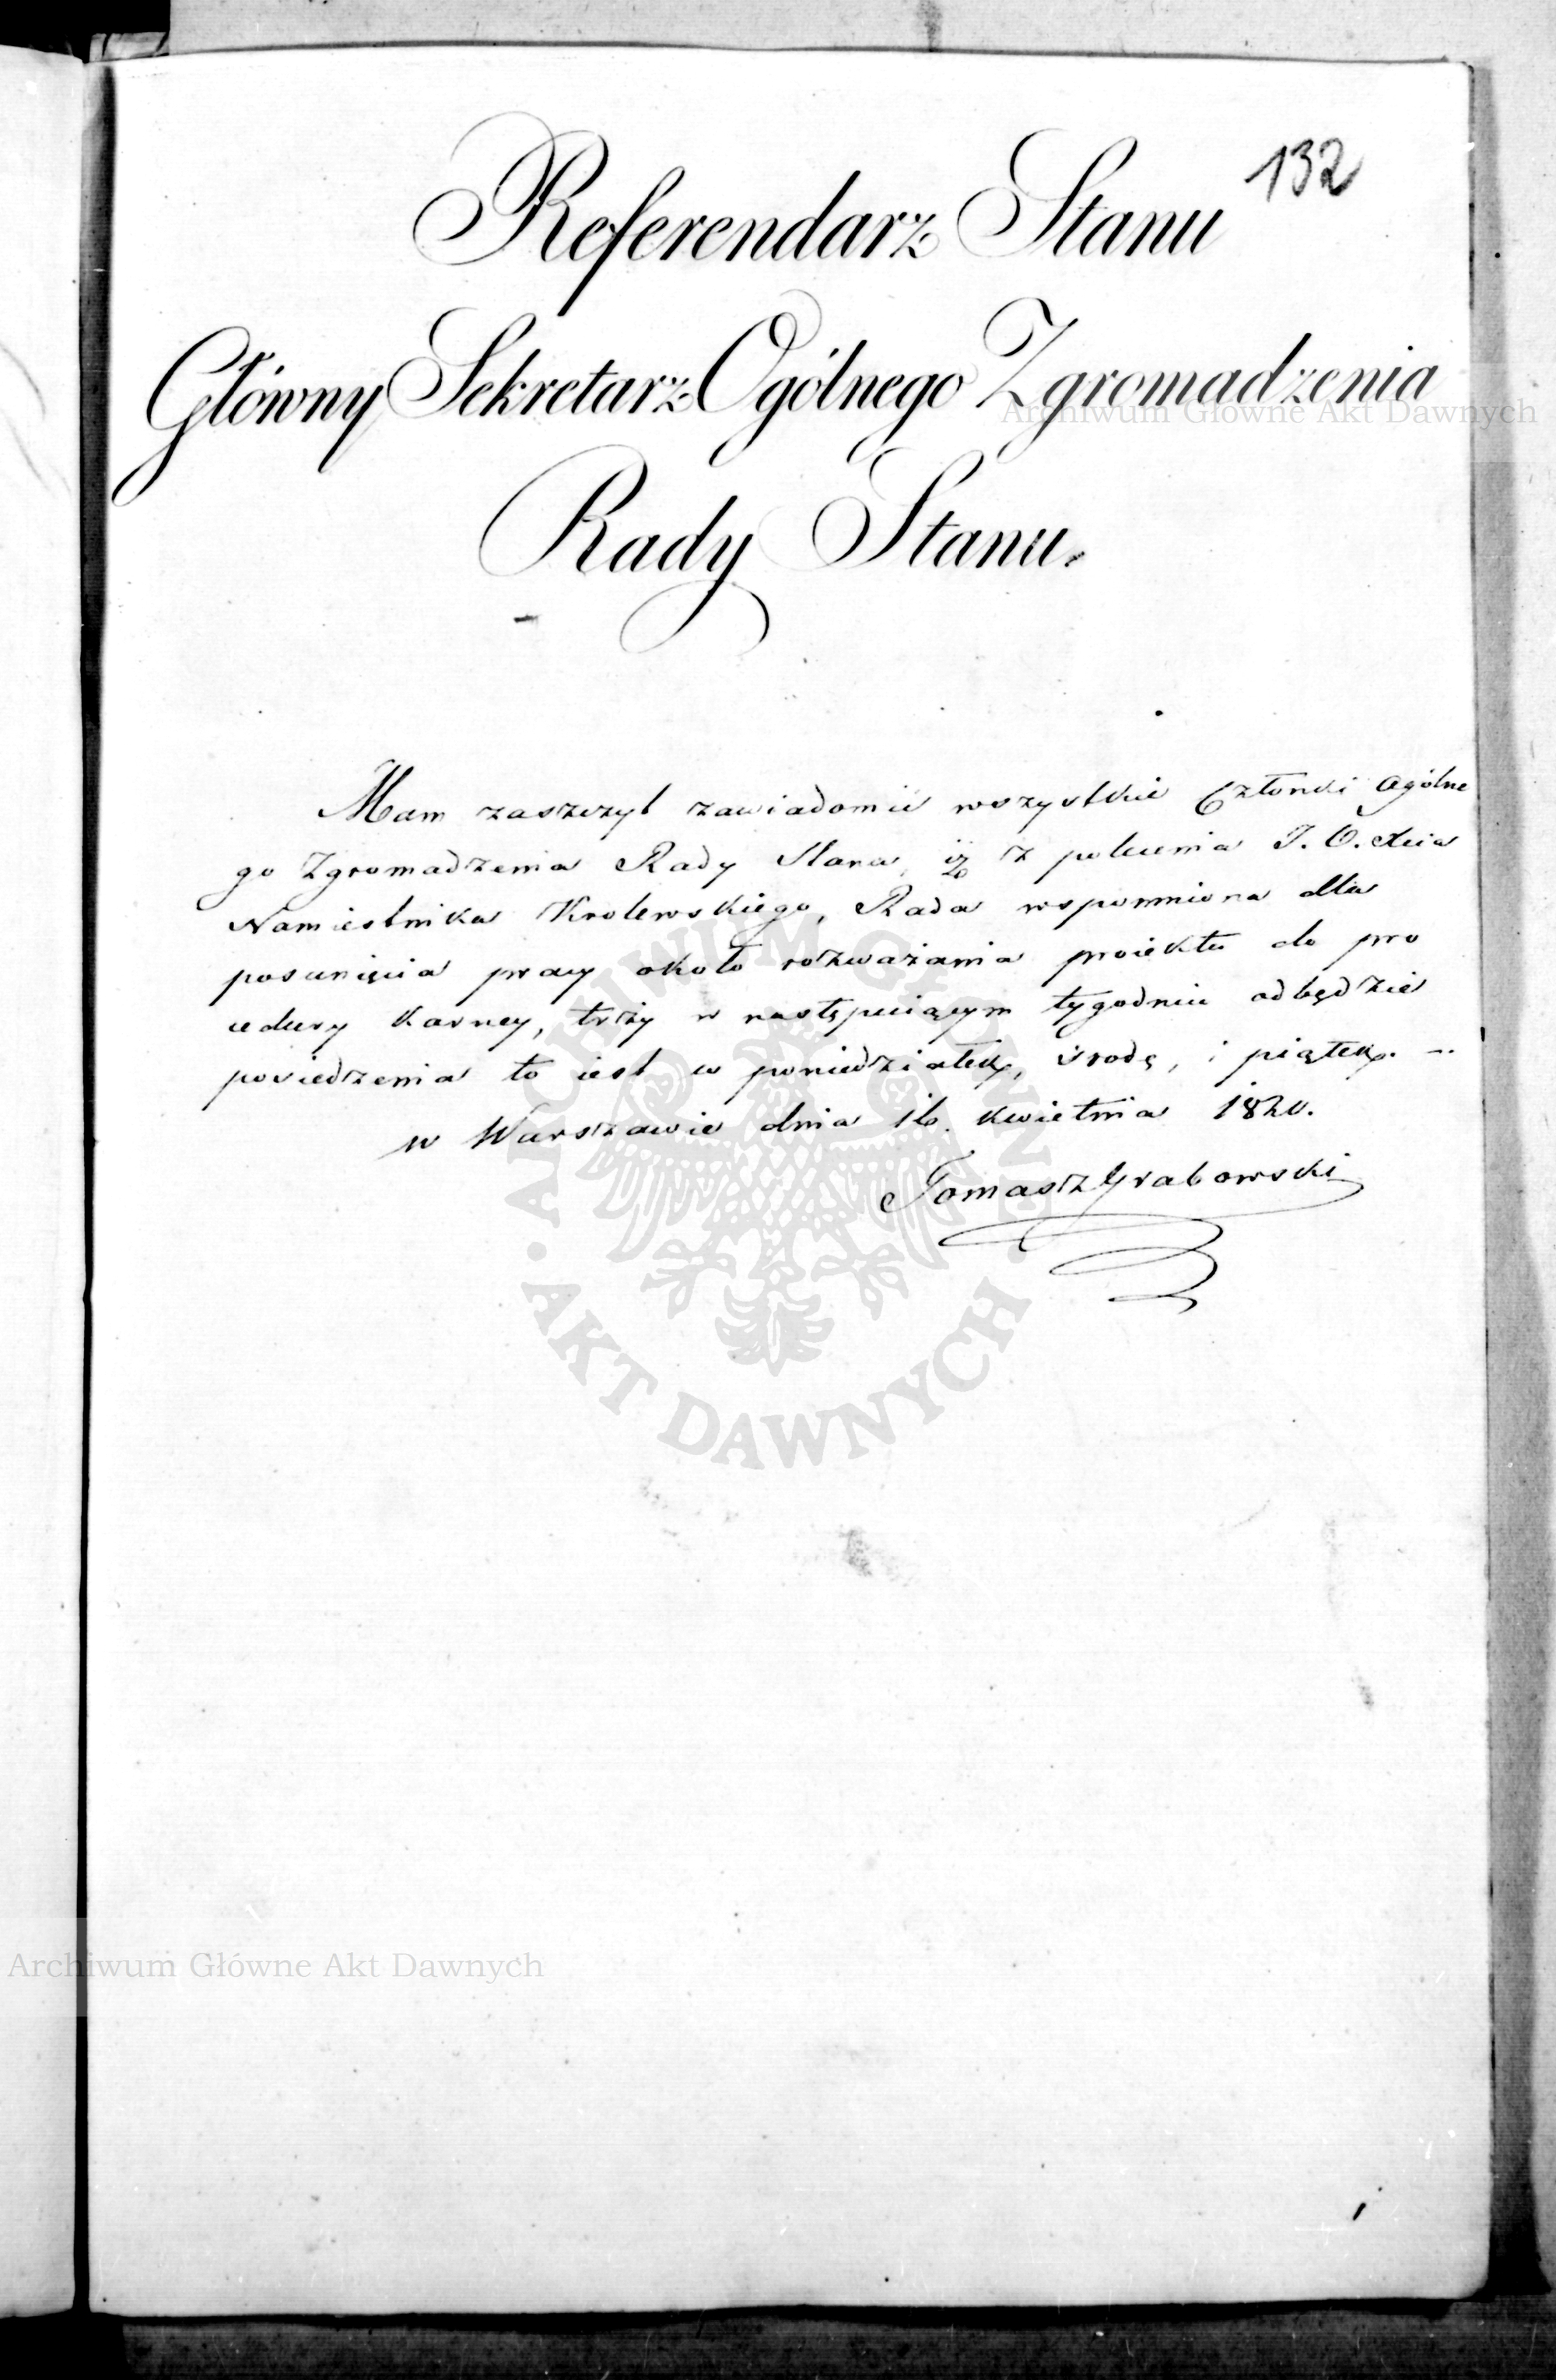 132
Referendarz Stanu
Główny Sekretarz Ogólnego Zgromadzenia
Rady Stanu.
Mam zaszczyt zawiadomić wszystkie Członki Ogólne
go Zgromadzenia Rady Stanu, iż z polecenia J. O. Xcia
Namiestnika Krolewskiego, Rada wspomniona dla
posunięcia pracy około rozważania proiektu do pro
cedury karney, trzy w następuiącym tygodniu odbędzie
posiedzenia to iest w poniedziałek, środę, i piątek. -
w Warszawie dnia 16. kwietnia 1820.
Tomasz Grabowski
Archiwum Główne Akt Dawnych
ARCHIWUM GŁÓWNE
AKT DAWNYCH
Archiwum Główne Akt Dawnych